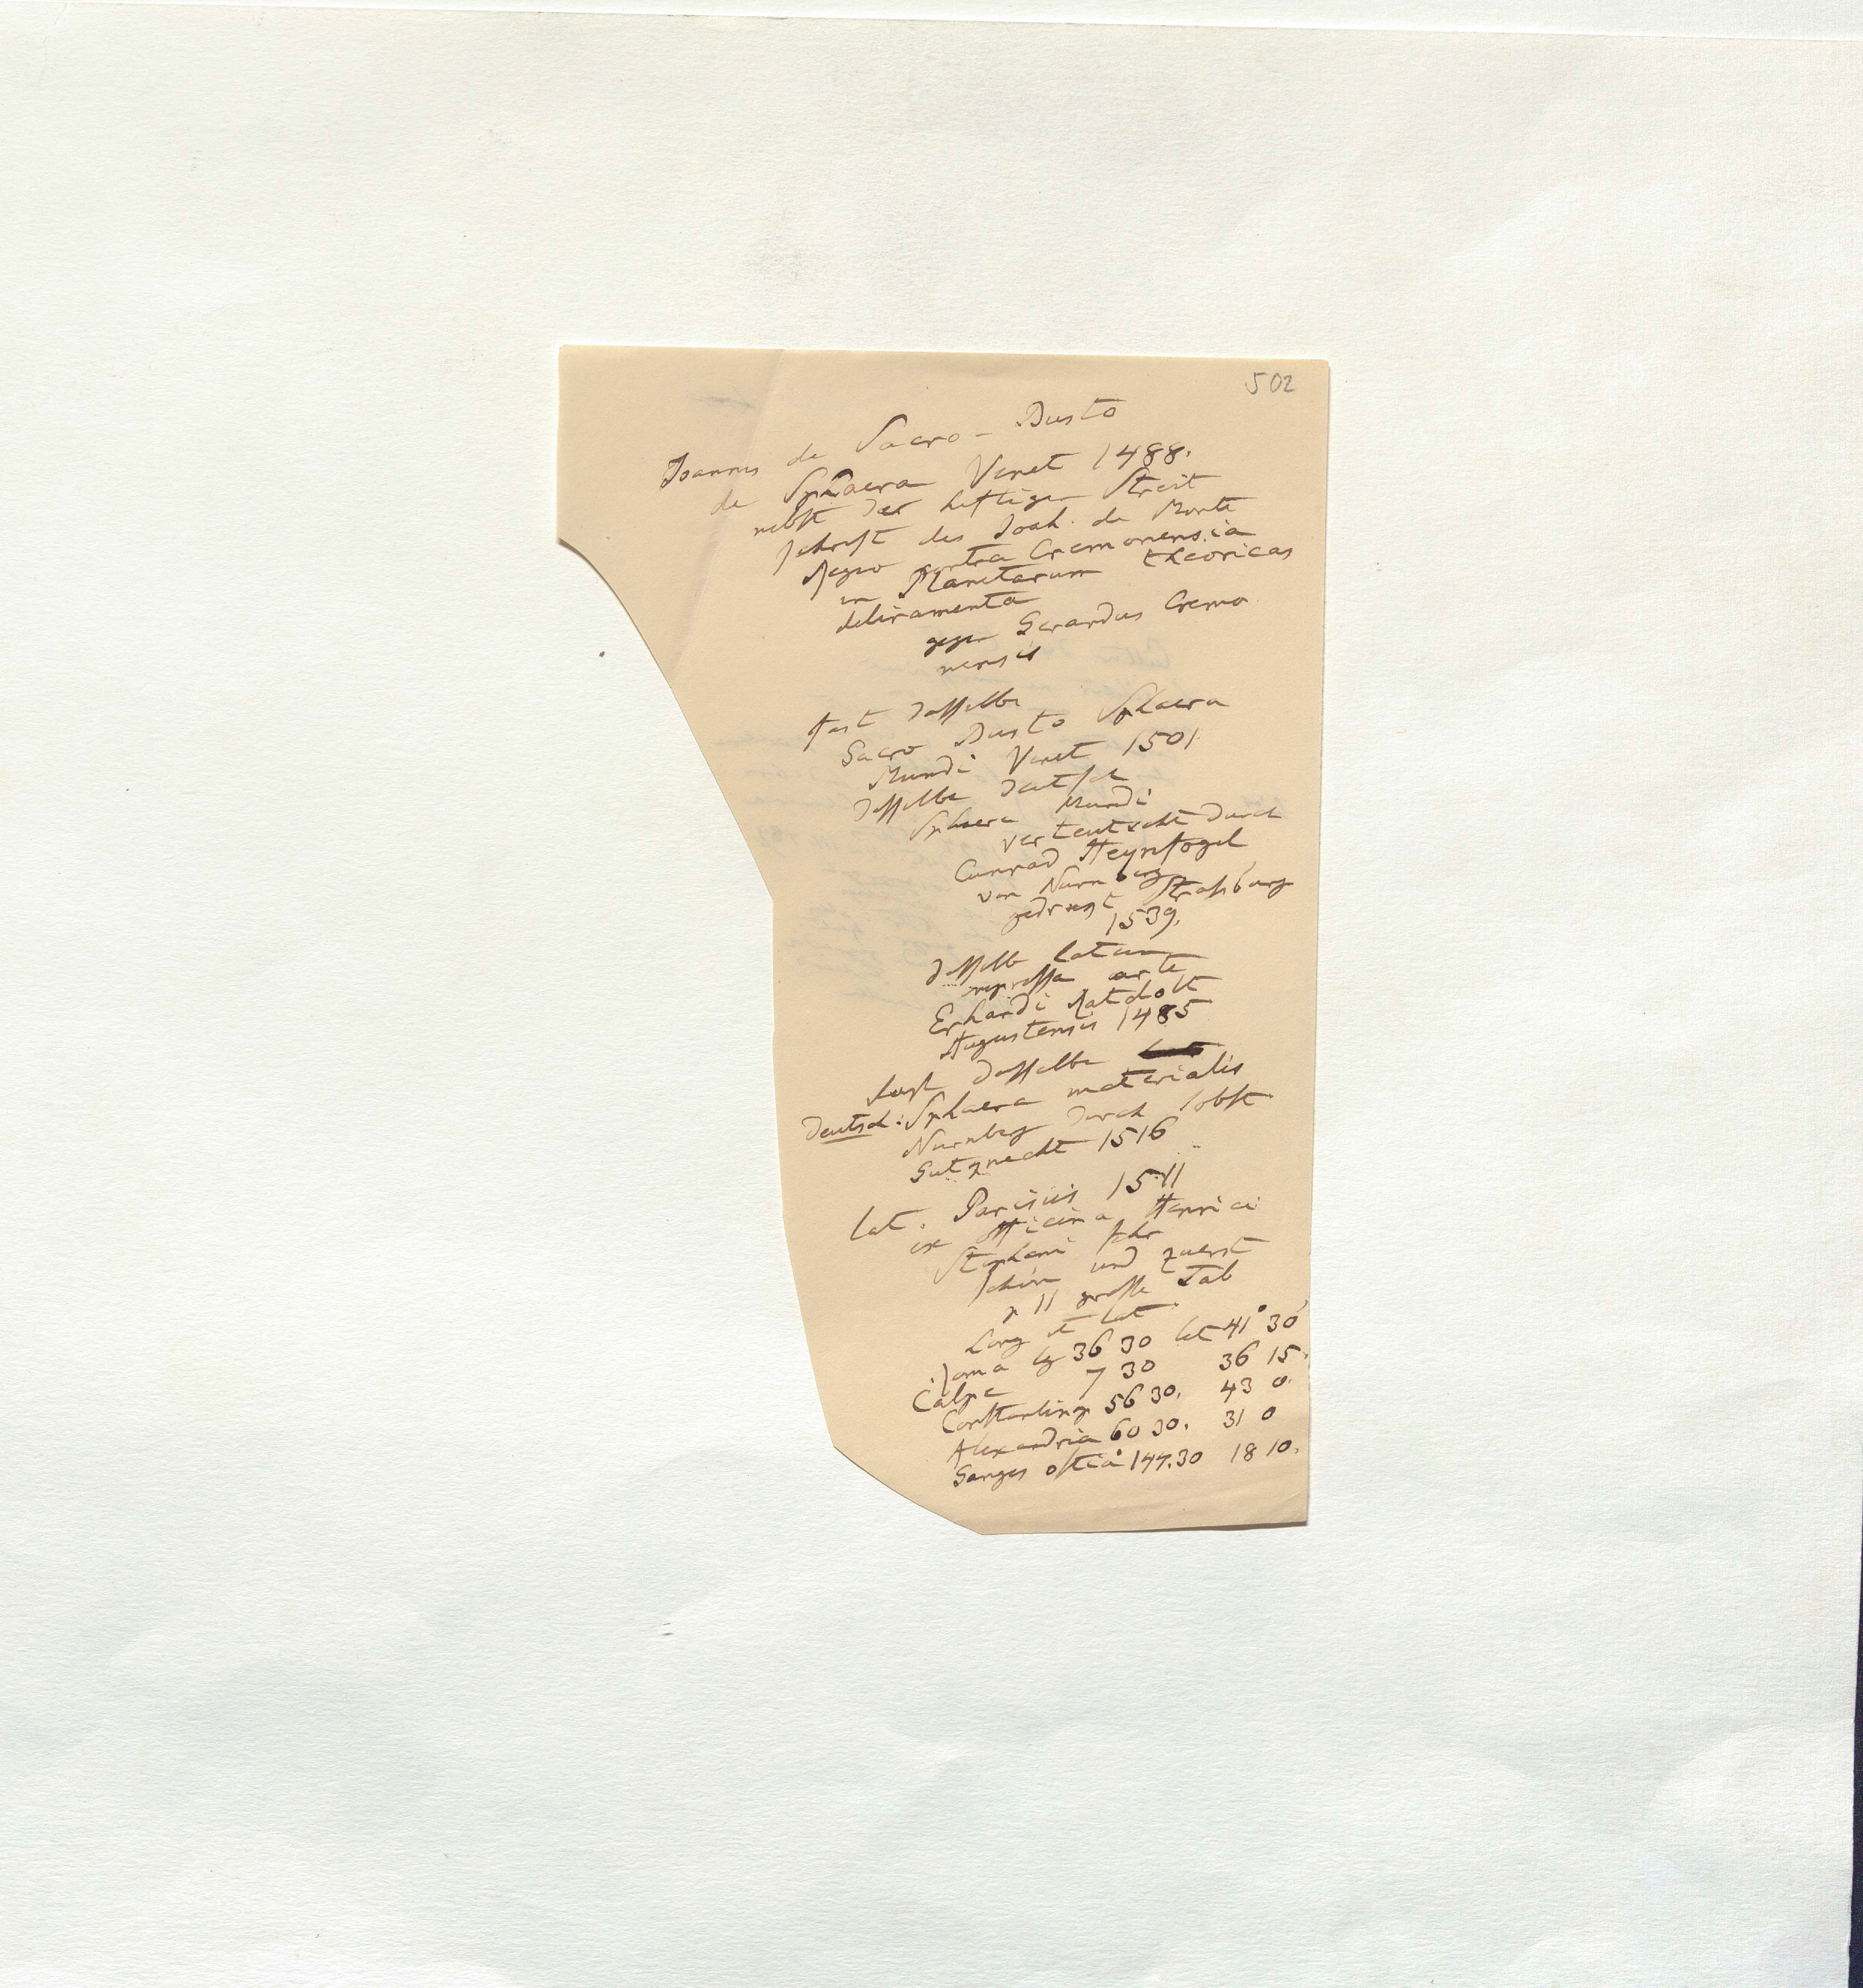 502
Joannis de Sacro-Busto
de Sphaera Venet 1488.
nebst der heftigen Streit
schrift des Joah. de Monte
Regio contra Cremonensia
in Planetarum theoricas
deliramenta
gegen Gerardus Cremo
nensis
fast dasselbe
Sacro Busto Sphaera
Mundi Venet 1501.
dasselbe deutsch
Sphaera Mundi
verteutscht durch
Cunrad Heynfogel
von Nurnberg
gedrugt Straßburg
1539.
dasselbe latein
impressa arte
Erhardi Ratdolt
Augustensis 1485
fast dasselbe
deutsch: Sphaera materialis
Nurnberg durch Jobst
Gutknecht 1516
lat. Parisiis 1511
ex officina Henrici
Stephani sehr
schön und zuerst
p 11 große Tab
Long et lat
Roma lg 36 30 lat 41° 30'
Calpe 7 30 36 15.
Constantinp 56 30. 43 0.
Alexandria 60 30. 31 0
Ganges ostia 147.30 18 10.